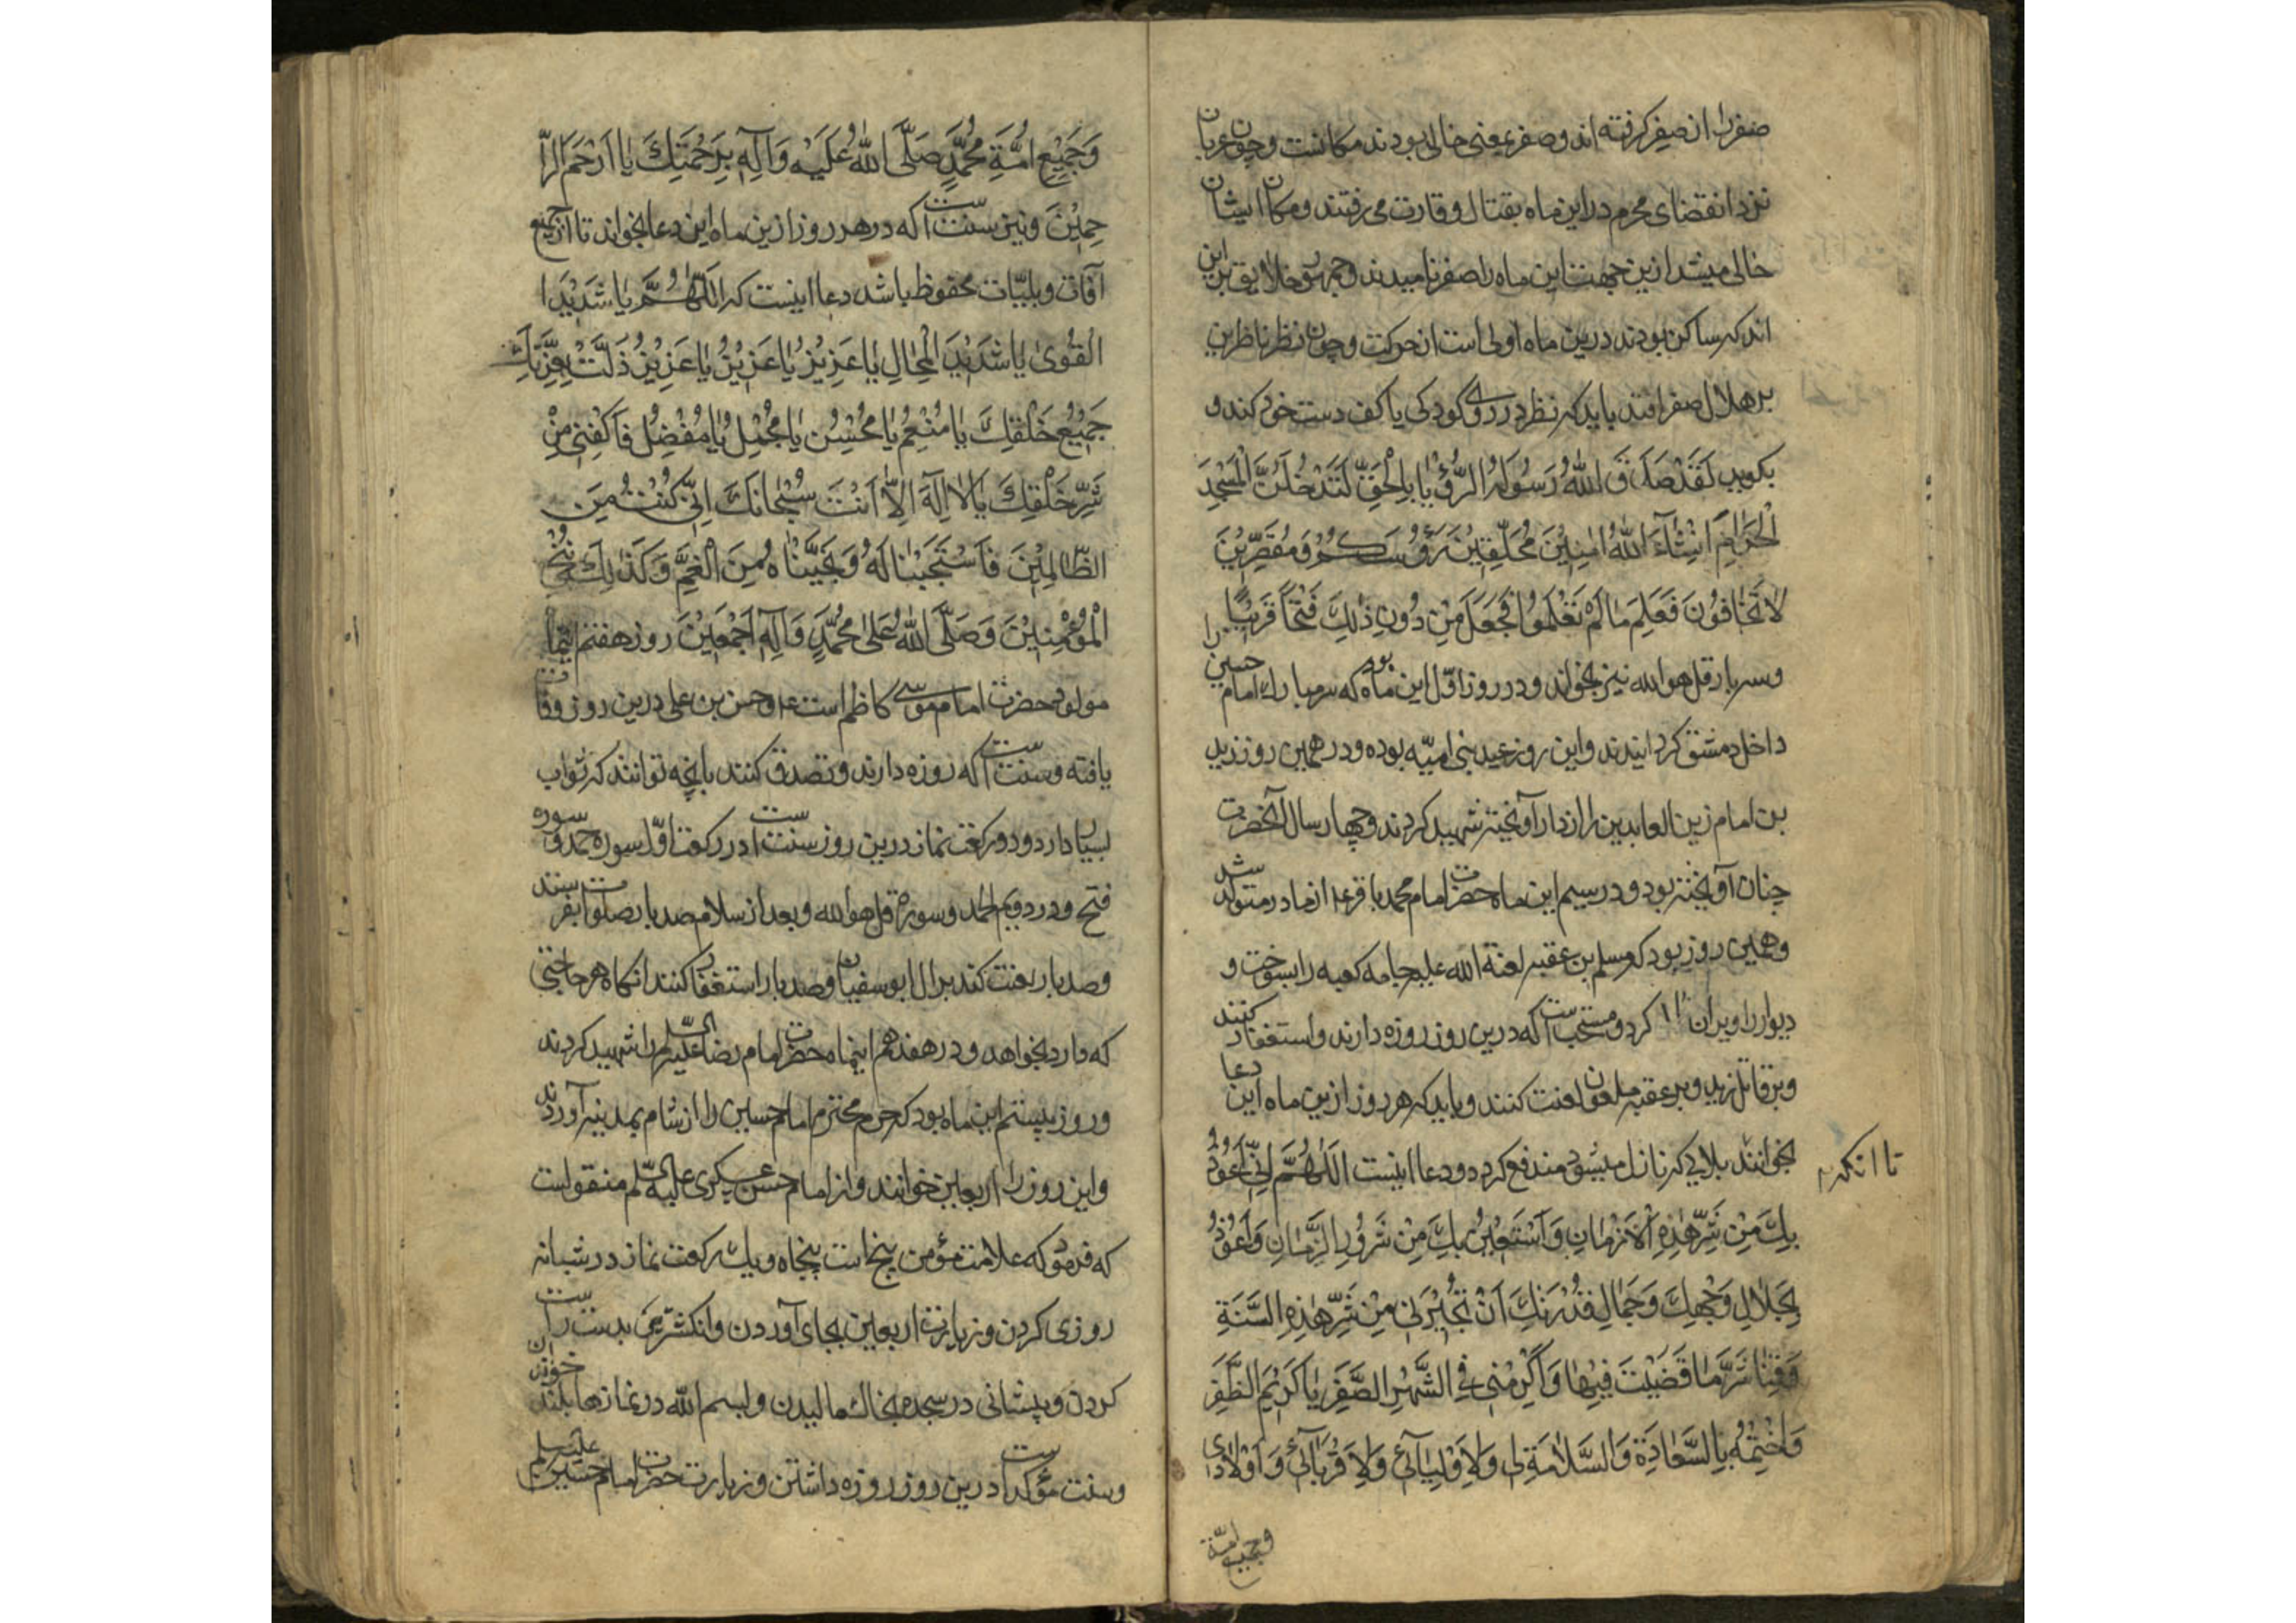 صفر را از صفر کرفته اند و صفر بمعنی خالی بودند مکانست و چون عربان
نزد انقضای محرم در این ماه بقتال و قارت می رفتند و مکان ایشان
خالی میشد ازین جهت این ماه را صفر نامیدند و جمهور خلایق برین
اند که ساکن بودند درین ماه اولی است از حرکت و چون نظر ناظرین
بر هلال صفر افتد باید که نظر در روی کودکی یا کف دست خود کند و
بکوید لَقَدْ صَدَقَ اللهُ رَسُولَهُ الرُّؤْیَا بِالْحَقِّ لَتَدْخُلُنَّ الْمَسْجِدَ
الْحَرَامَ اِنْشَآءَ اللهُ اٰمِنِیْنَ مُحَلِّقِیْنَ رَؤُسَکُمْ وَ مُقَصِّرِیْنَ
لَا تَخَافُوْنَ فَعَلِمَ مَا لَمْ تَعْلَمُوا فَجَعَلَ مِنْ دُونِ ذٰلِکَ فَتْحًا قَرِیْبًا
و سه بار قل هو الله نیز بخواند و در روز اوّل این ماه بود که سر مبارک امام حسین را
داخل دمشق کردانیدند و این روز عید بنی امیّه بوده و در همین روز زید
بن امام زین العابدین را از دار آویخته شهید کردند و چهار سال آنحضرت
چنان آویخته بود و در سیم این ماه حضرت امام محمد باقر ع از مادر متولد شد
و همین روز بود که مسلم بن عقبه لعنة الله علیه جامه کعبه را بسوخت و
دیوار را ویران کرد و مستحب است که درین روز روزه دارند و استغفار کنند
و بر قاتل زید و بر عقبه ملعون لعنت کنند و باید که هر روز ازین ماه این دعا
بخوانند بلایی که نازل میشود مندفع کردد و دعا اینست اللّٰهُمَّ اِنِّی اَعُوْذُ
تا انکه
بِکَ مِنْ شَرِّ هٰذِهِ الْاَزْمَانِ وَ اَسْتَعِیْنُ بِکَ مِنْ شَرُوْرِ الزَّمَانِ وَ اَعُوْذُ
بِجَلَالِ وَجْهِکَ وَ جَمَالِ قُدْرَتِکَ اَنْ تُجِیْرَنِی مِنْ شَرِّ هٰذِهِ السَّنَةِ
وَ قِنَا شَرَّ مَا قَضَیْتَ فِیْهَا وَ اَکْرِمْنِی فِی الشَّهْرِ الصَّفَرِ یَا کَرِیْمَ الظَّفَرِ
وَ اخْتِمْهُ بِالسَّعَادَةِ وَ السَّلَامَةِ لِی وَ لِاَوْلِیَآئِی وَ لِاَقْرِبَآئِی وَ اَوْلَادِی
و جمیع امّة
وَ جَمِیْعِ اُمَّةِ مُحَمَّدٍ صَلَّی اللهُ عَلَیْهِ وَ آلِهٖ بِرَحْمَتِکَ یَا اَرْحَمَ الرَّا
حِمِیْنَ و نیز سنت است که در هر روز ازین ماه این دعا بخواند تا از جمیع
آفات و بلیّات محفوظ باشد دعا اینست که اَللّٰهُمَّ یَا شَدِیْدَ ا
الْقُوٰی یَا شَدِیْدَ الْمِحَالِ یَا عَزِیْزُ یَا عَزِیْزُ یَا عَزِیْزُ ذَلَّتْ بِعِزَّتِکَ
جَمِیْعُ خَلْقِکَ یَا مُنْعِمُ یَا مُحْسِنُ یَا مُجْمِلُ یَا مُفْضِلُ فَاکْفِنِی مِنْ
شَرِّ خَلْقِکَ یَا لَا اِلٰهَ اِلَّا اَنْتَ سُبْحَانَکَ اِنِّی کُنْتُ مِنَ
الظَّالِمِیْنَ فَاسْتَجَبْنَا لَهُ وَ نَجَّیْنَاهُ مِنَ الْغَمِّ وَ کَذٰلِکَ نُنْجِی
الْمُؤْمِنِیْنَ وَ صَلَّی اللهُ عَلٰی مُحَمَّدٍ وَ آلِهٖ اَجْمَعِیْنَ روز هفتم اینماه
مولود حضرت امام موسی کاظم است ع و حسن بن علی درین روز وفات
یافته و سنت است که روزه دارند و تصدق کنند بانچه توانند که ثواب
بسیار دارد و دو رکعت نماز درین روز سنت است در رکعت اوّل سوره حمد و سوره
فتح و در دویم الحمد و سوره قل هو الله و بعد از سلام صد بار صلوات بفرستند
و صد بار لعنت کند بر ال ابو سفیان و صد بار استغفار کنند انکاه هر حاجتی
که دارد بخواهد و در هفدهم اینماه حضرت امام رضا علیه السلام را شهید کردند
و روز بیستم این ماه بود که حرم محترم امام حسین را از شام بمدینه آوردند
و این روز را اربعین خوانند و از امام حسن عسکری علیه السّلم منقول است
که فرمود که علامت مؤمن پنج است پنجاه و یک رکعت نماز در شبانه
روزی کردن و زیارت اربعین بجای آوردن و انکشتری بدست راست
کردن و پیشانی در سجده بخاک مالیدن و بسم الله در نمازها بلند خواندن
و سنت مؤکد است درین روز روزه داشتن و زیارت حضرت امام حسین علیه السلم